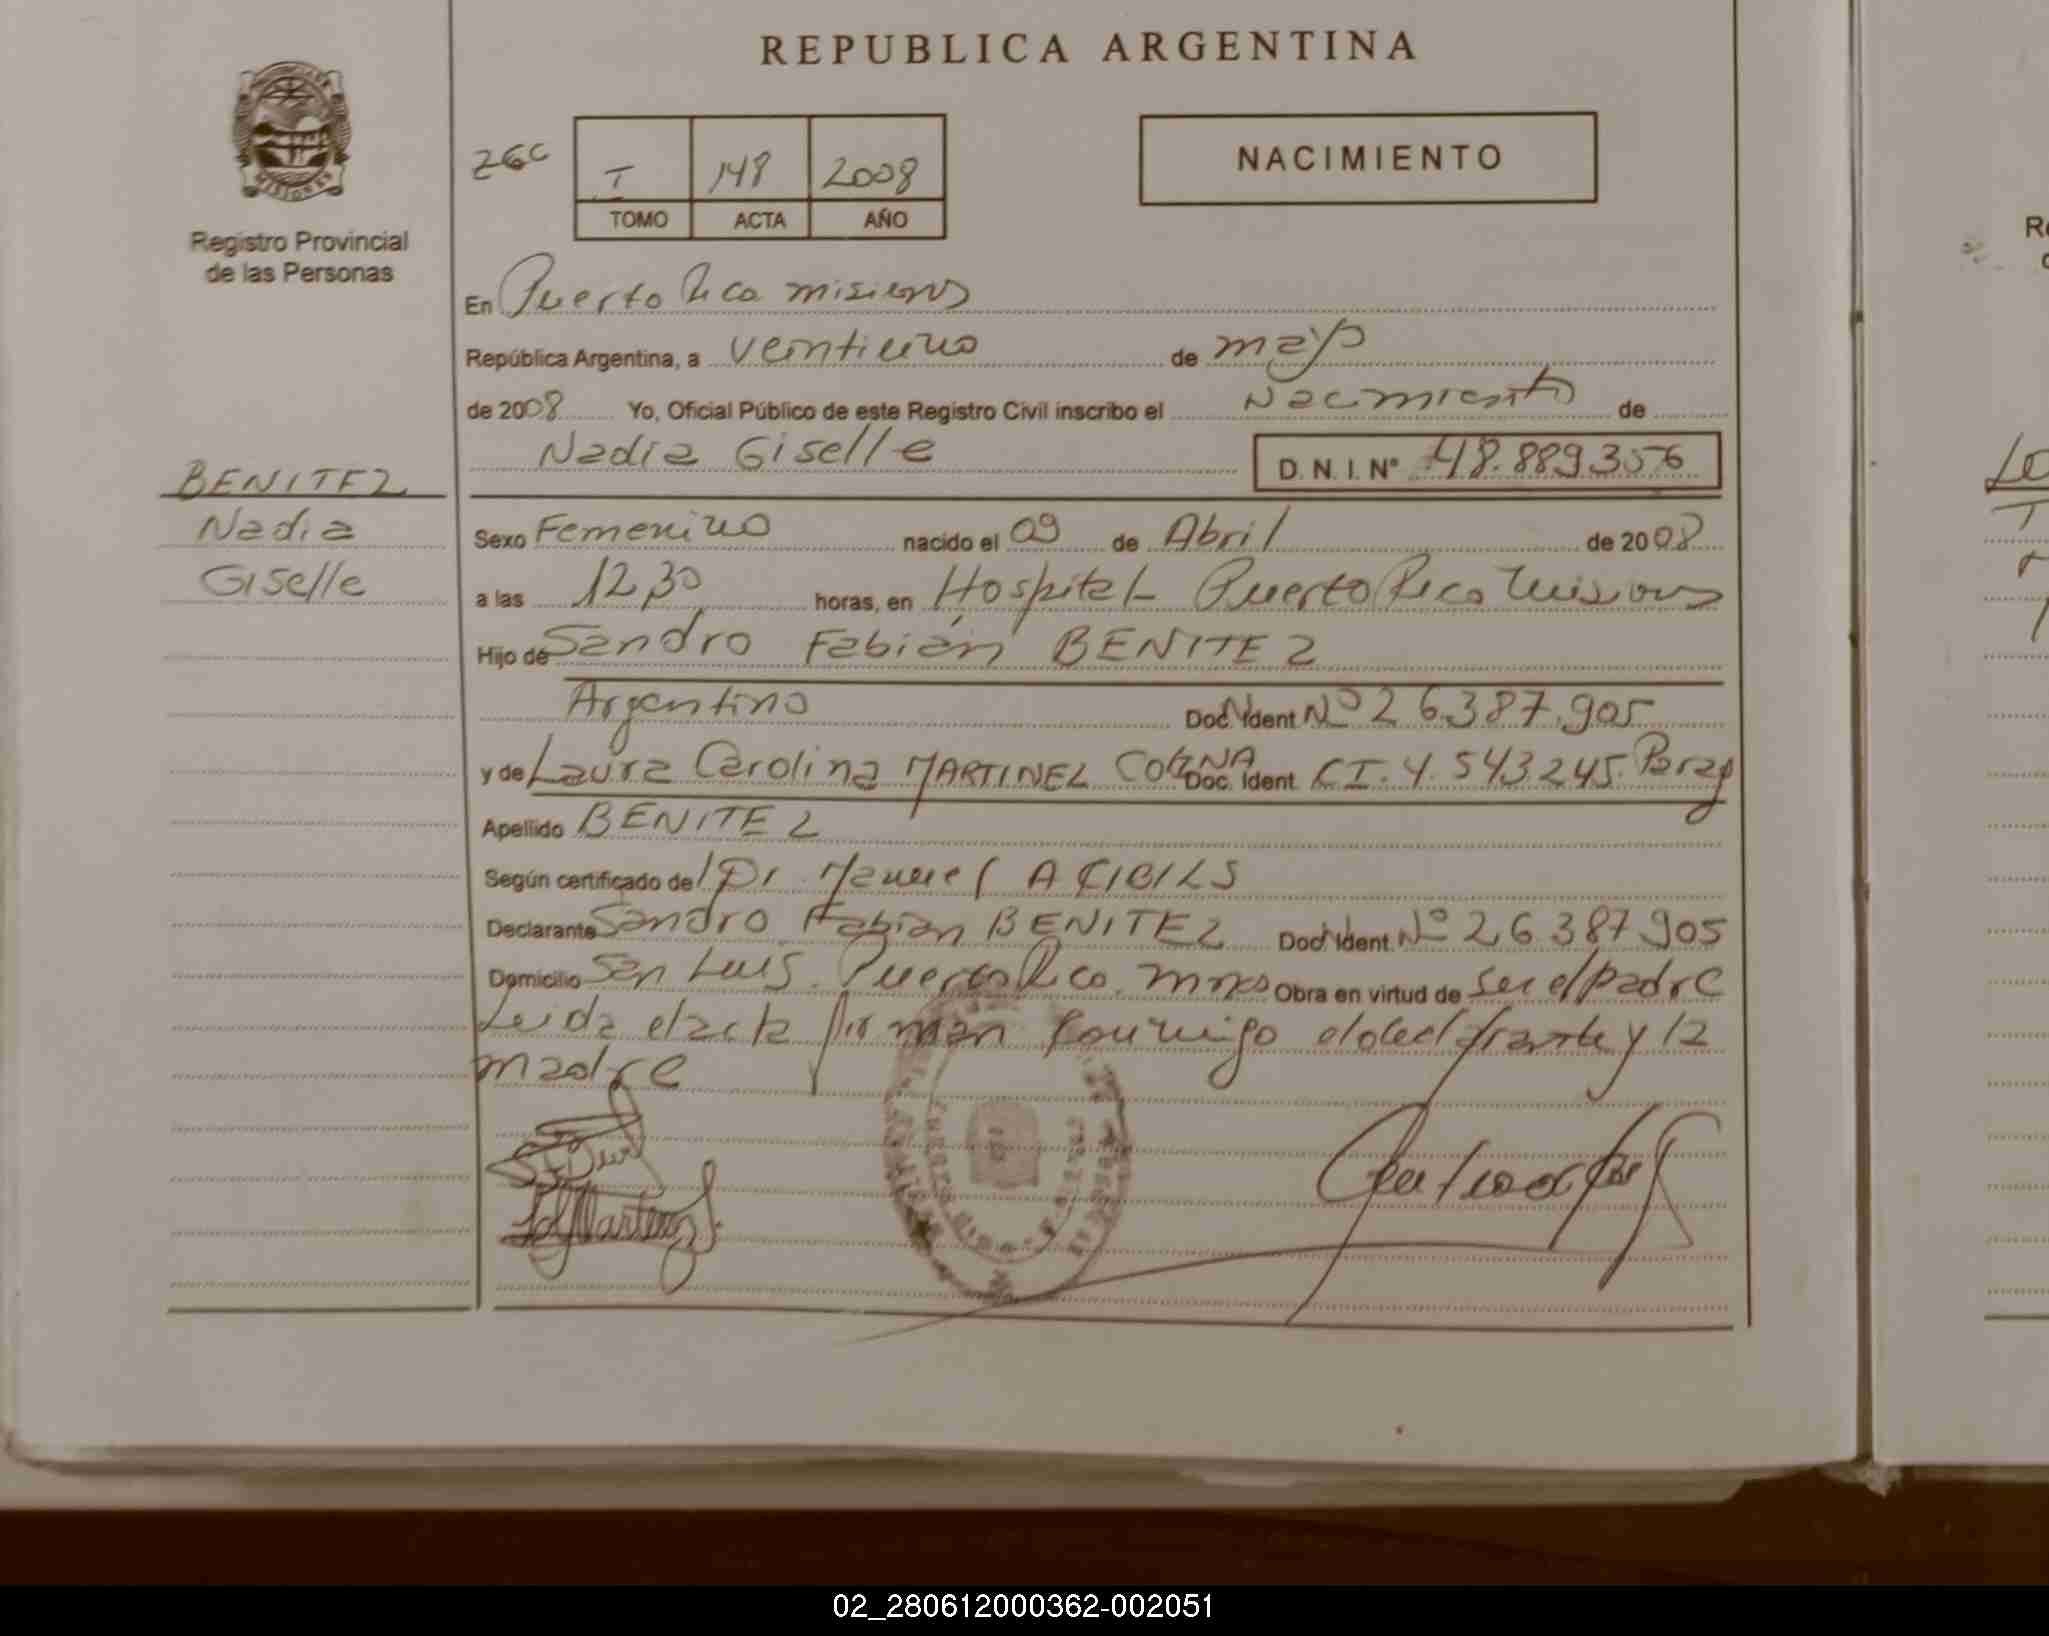 REPUBLICA ARGENTINA
MISIONES
Registro Provincial
de las Personas
ZGC
T 148 2008
TOMO ACTA AÑO
NACIMIENTO
En Puerto Rico misiones
República Argentina, a veintiuno de mayo
de 2008 Yo, Oficial Público de este Registro Civil inscribo el Nacimiento de
Nadia Giselle D. N. I. N° 48.889.356
BENITEZ
Nadia
Giselle
Sexo Femenino nacido el 09 de Abril de 2008
a las 12,30 horas, en Hospital Puerto Rico Misiones
Hijo de Sandro Fabián BENITEZ
Argentino Doc. Ident. N° 26.387.905
y de Laura Carolina MARTINEZ Doc. Ident. CI. 4.543.245. Parag
Apellido BENITEZ
Según certificado del Dr. Manuel
Declarante Sandro Fabian BENITEZ Doc. Ident. N° 26.387.905
Domicilio San Luis. Puerto Rico. mnes Obra en virtud de ser el padre
Leida el acta firman conmigo el declarante y la
madre
02_280612000362-002051